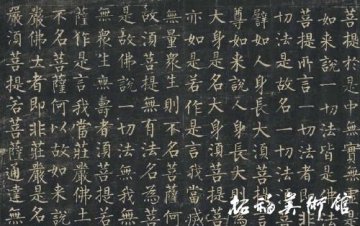 菩提於是中無實無
如來說一切法皆是佛法
菩提所言一切法者即非
切法是故名一切法須菩
譬如人身長大須菩提
尊如來說人身長大則為
大身是名大身須菩提
亦如是若作是言我當滅
無量眾生則不名菩薩何
故須菩提無有法名為菩
是故佛說一切法無我
無眾生無壽者須菩提若
薩作是言我當莊嚴佛土
不名菩薩何以故如來說
嚴佛土者即非莊嚴是名
嚴須菩提若菩薩通達無
美術館